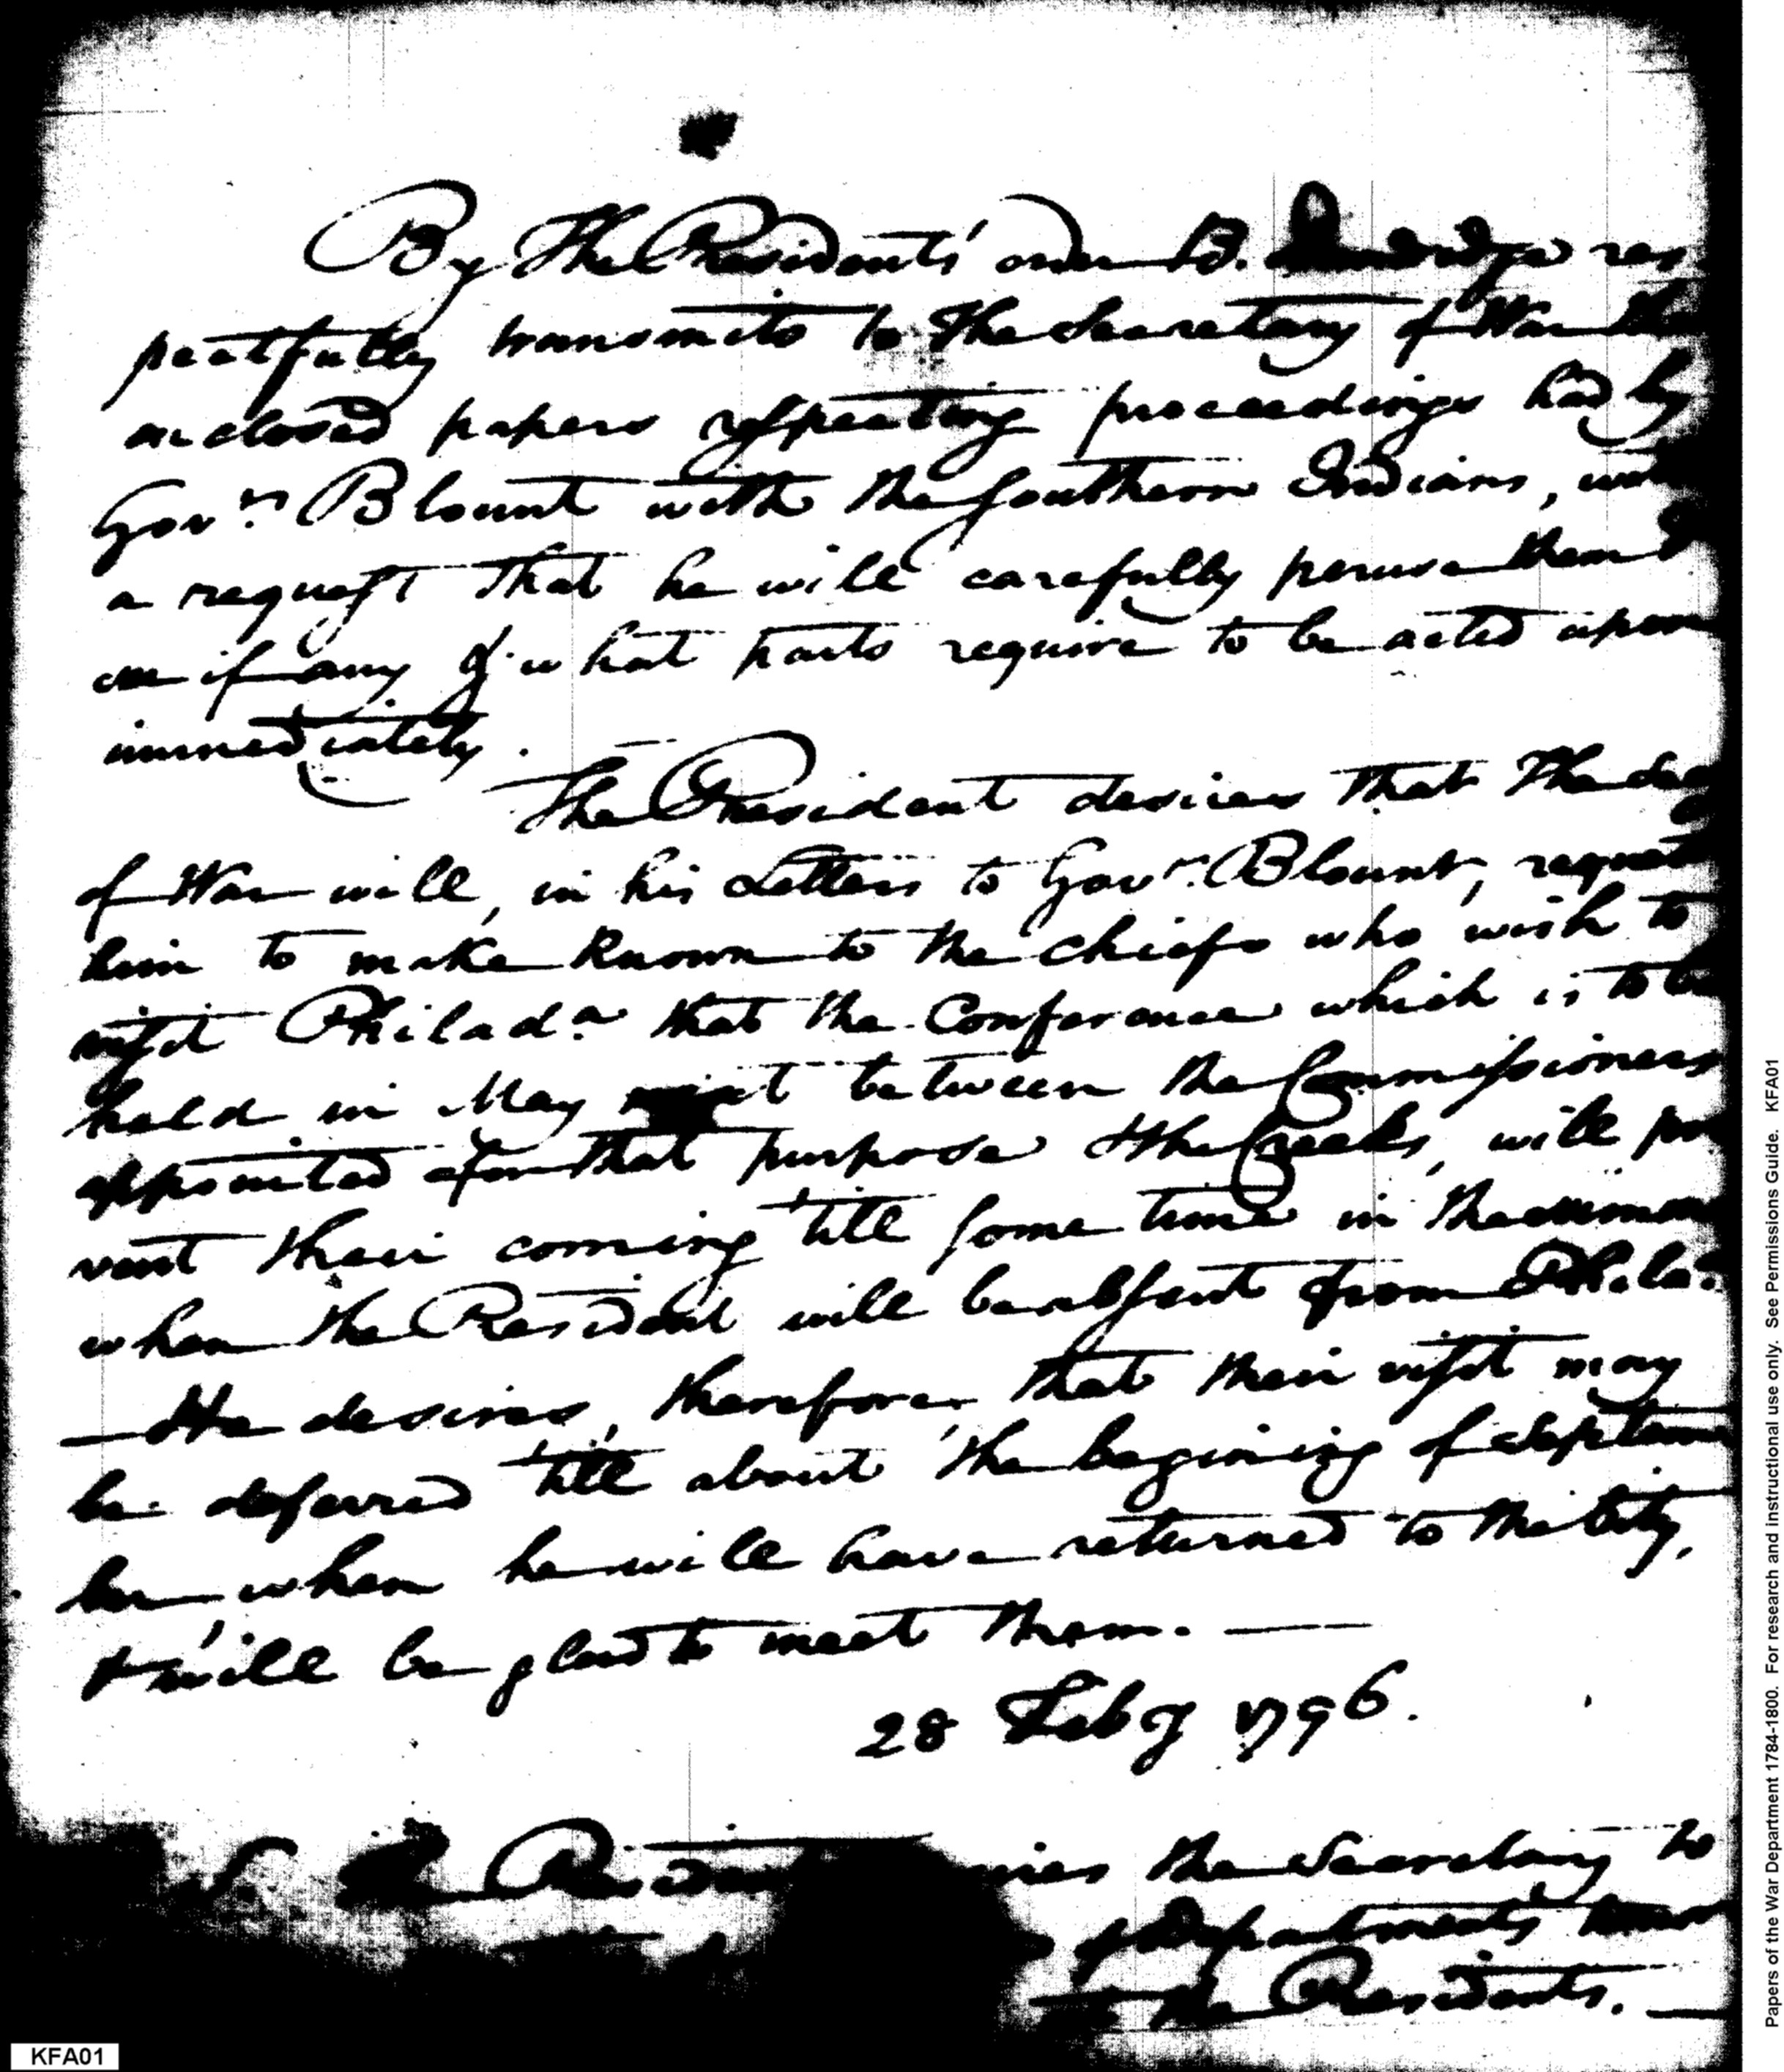 By The President's order B. Dandridge res
pectfully transmits to the Secretary of War the
enclosed papers respecting proceedings had by
Govr. Blount with the southern Indians, with
a request that he will carefully peruse them &
see if any & what parts require to be acted upon
immediately.
The President desires that the Secy
of War will, in his Letters to Govr. Blount, request
him to make known to the chiefs who wish to
visit Philada. that the Conference which is to be
held in May next between the Commissioners
appointed for that purpose & the Creeks, will pre
vent their coming 'till some time in the summer
when the President will be absent from Phila.
— He desires, therefore, that their visit may
be deferred 'till about the begining of Septem
ber when he will have returned to the City,
& will be glad to meet them. —
28 Feby 1796.
The President the Secretary to
of Departments
to the Presidents. —
KFA01
Papers of the War Department 1784-1800. For research and instructional use only. See Permissions Guide. KFA01